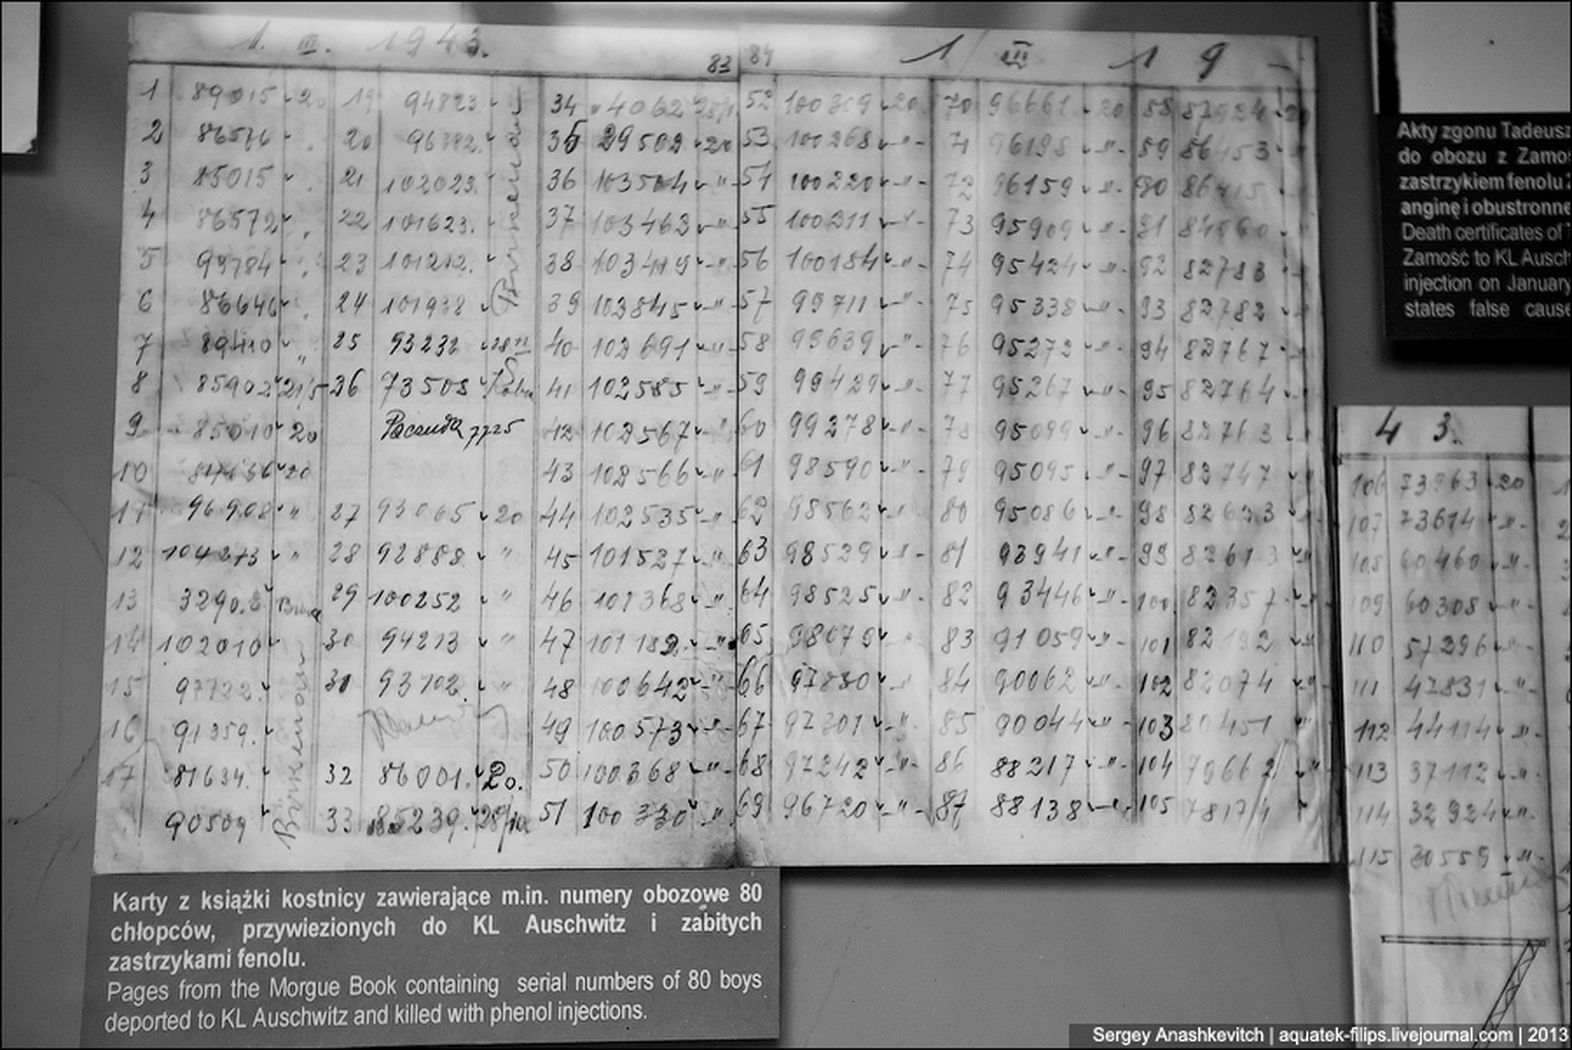 1. III. 1943.
83 84
1 III 1 9
1 89015 20 19 94823 34 4062 52 100309 20 70 96661 20 88 87924
2 86576 20 96782 35 29502 20 53 100268 71 96198 89 86453
3 85015 21 102023 36 103504 54 100220 72 96159 90 86415
4 86572 22 101623 37 103462 55 100211 73 95909 91 84560
5 99784 23 101212 38 103419 56 100184 74 95424 92 82783
6 86646 24 101938 39 102845 57 99711 75 95338 93 82782
7 89410 25 93232 40 102691 58 99639 76 95272 94 82767
8 85902 26 73508 41 102585 59 99429 77 95267 95 82764
9 85010 20 7725 42 102567 60 99278 78 95099 96 82763
10 20 43 102566 61 98590 79 95095 97 82747
96908 27 93065 20 44 102535 62 98562 80 95086 98 82623
12 104273 28 92888 45 101527 63 98529 81 93941 99 82613
13 32902 29 100252 46 101368 64 98525 82 93446 100 82357
14 102010 30 94213 47 101182 65 98079 83 91059 101 82192
15 97722 31 93702 48 100642 66 97830 84 90062 102 82074
16 91359 49 100573 67 97301 85 90044 103 80451
17 81634 32 86001 20. 50 100368 68 97242 86 88217 104 79662
90509 33 85239 51 100330 69 96720 87 88138 105 78174
Birkenau
Birkenau
4 3.
106 73963 20
107 73614
108 60460
109 60308
110 57296
111 47831
112 44114
113 37112
114 32924
115 30559
Karty z książki kostnicy zawierające m.in. numery obozowe 80
chłopców, przywiezionych do KL Auschwitz i zabitych
zastrzykami fenolu.
Pages from the Morgue Book containing serial numbers of 80 boys
deported to KL Auschwitz and killed with phenol injections.
Akty zgonu Tadeusz
do obozu z Zamo
zastrzykiem fenolu
anginę i obustronne
Death certificates of
Zamość to KL Ausch
injection on January
states false cause
Sergey Anashkevitch | aquatek-filips.livejournal.com | 2013